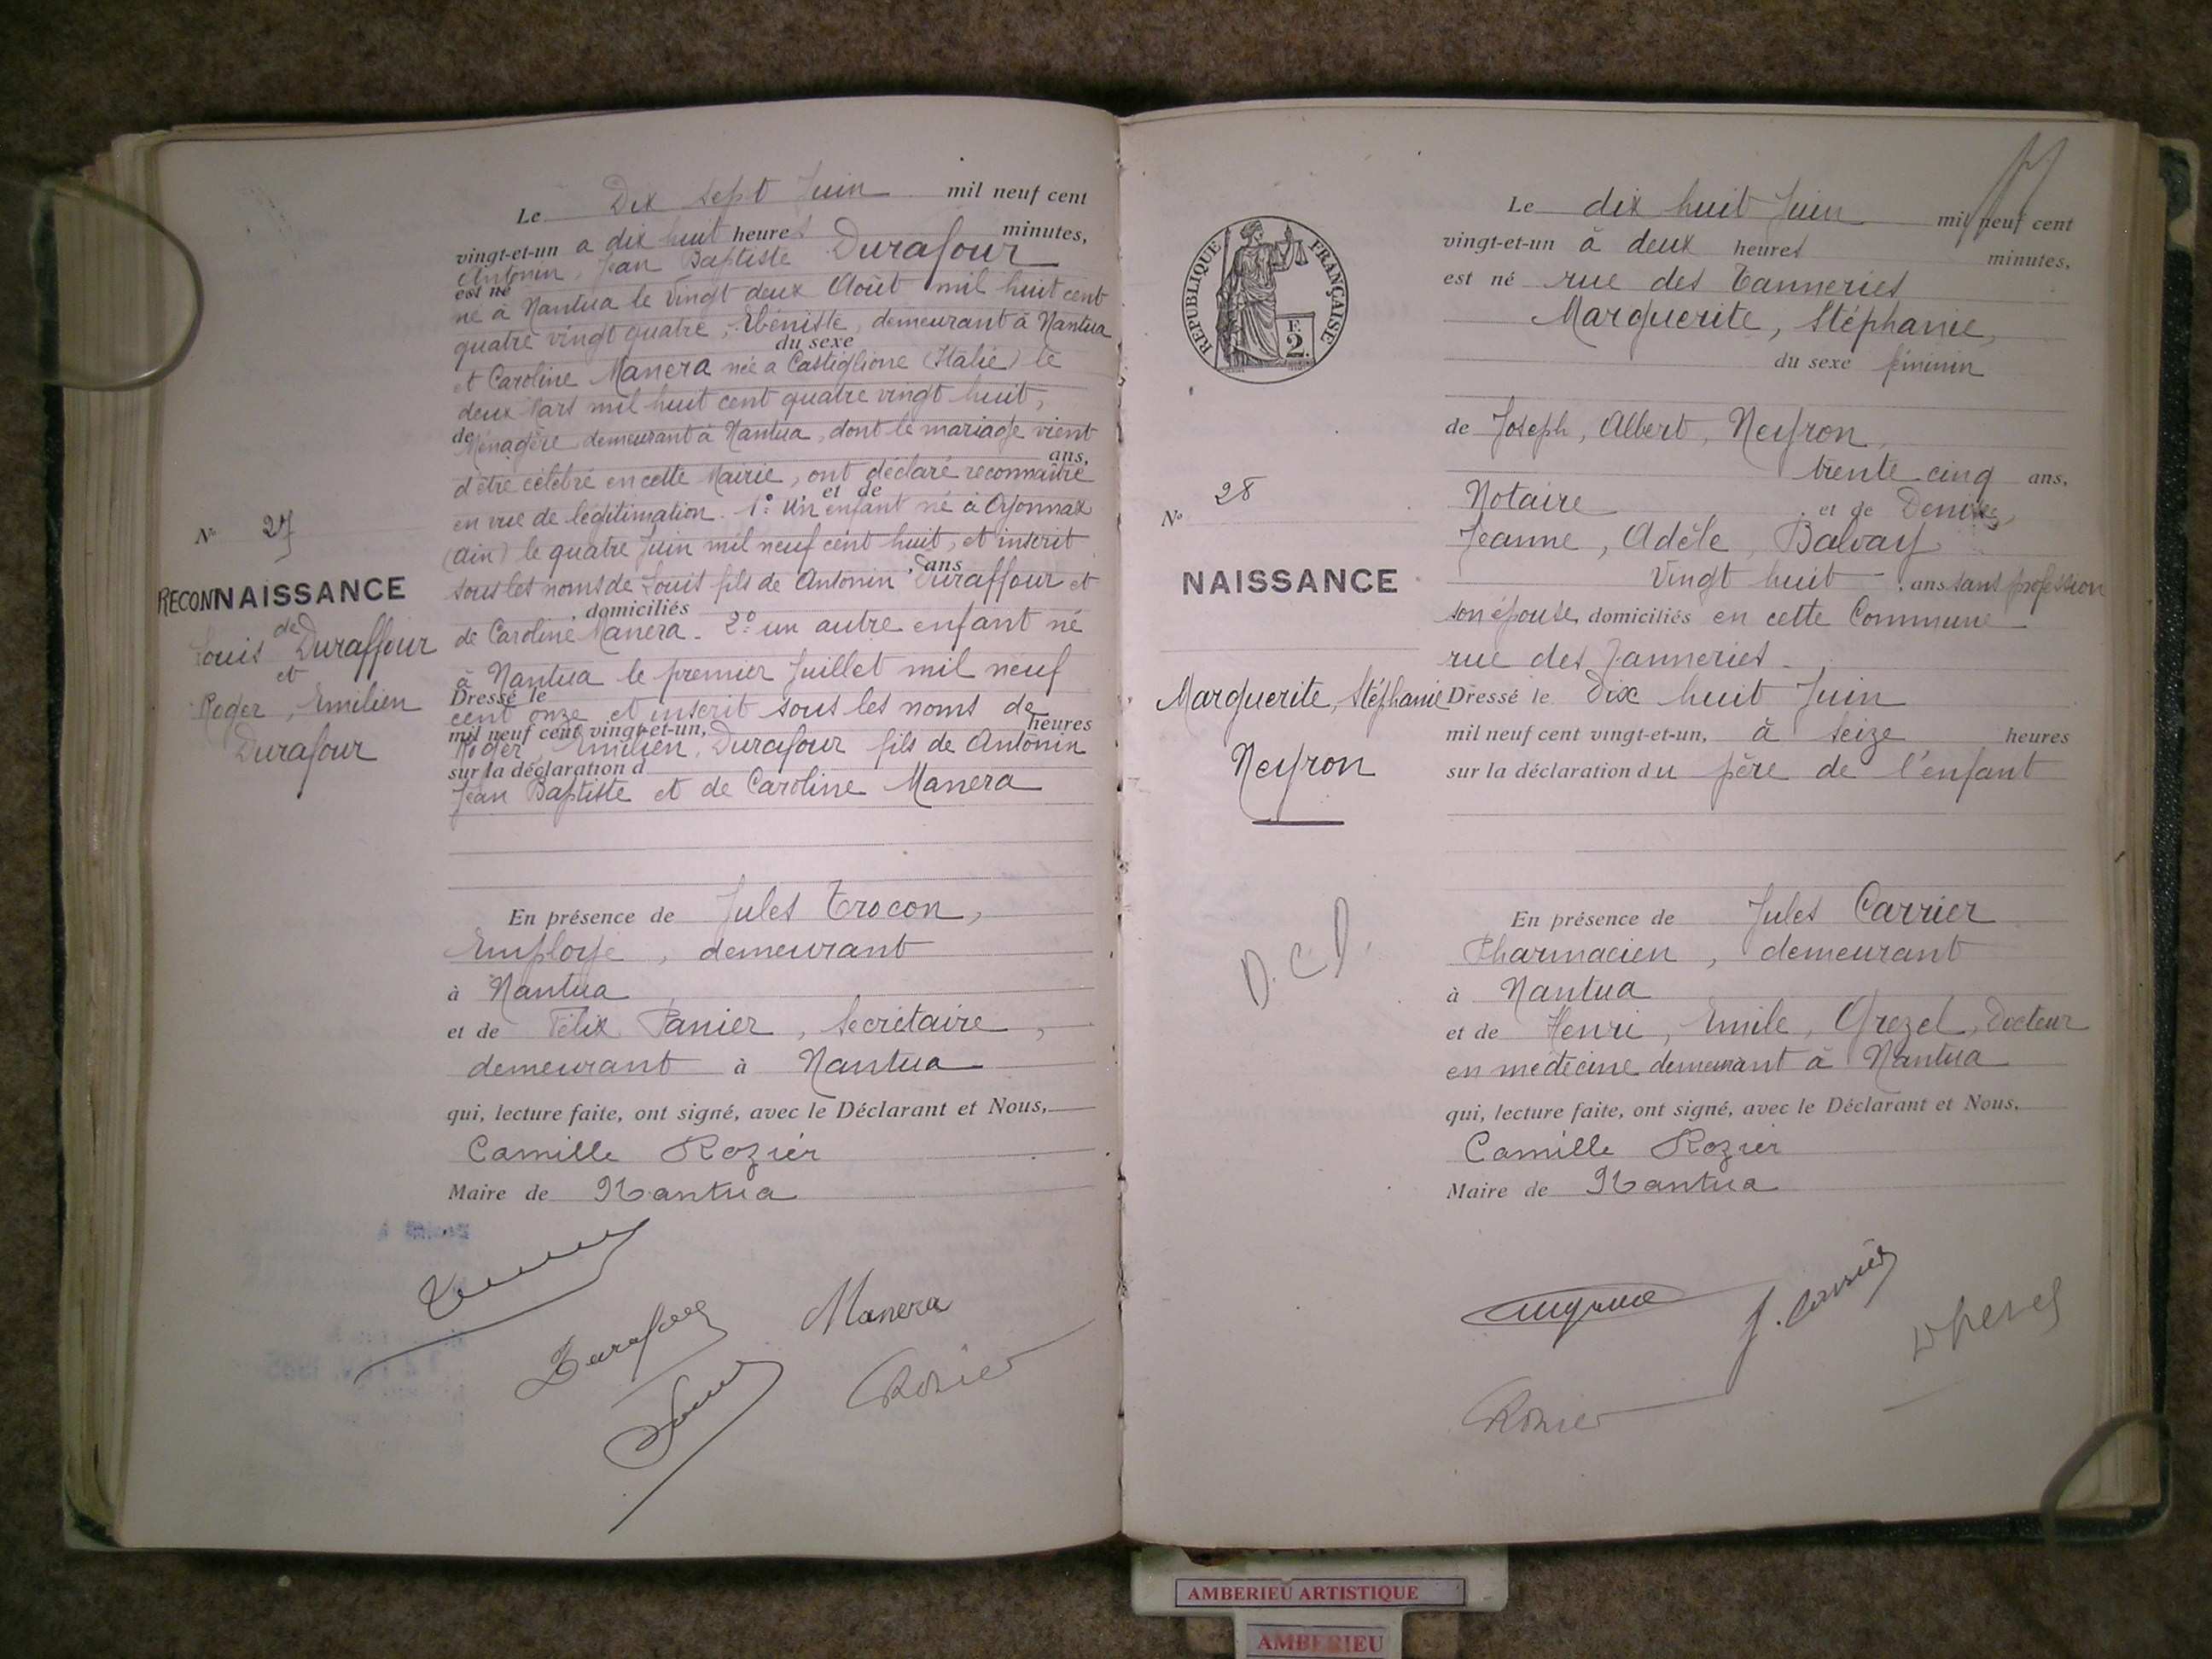 Le Dix sept Juin mil neuf cent
vingt-et-un a dix huit heures minutes,
Antonin, Jean Baptiste Durafour
est né
né à Nantua le Vingt deux Août mil huit cent
quatre vingt quatre, Ebéniste, demeurant à Nantua
du sexe
et Caroline Manera née à Castiglione (Italie) le
deux Mars mil huit cent quatre vingt huit,
de
Ménagère demeurant à Nantua, dont le mariage vient
ans,
d'être célébré en cette Mairie, ont déclaré reconnaître
et de
en vue de légitimation. 1º: Un enfant né à Oyonnax
(Ain) le quatre Juin mil neuf cent huit, et inscrit
, ans
sous les noms de Louis fils de Antonin Duraffour et
, domiciliés
de Caroline Manera. 2º: un autre enfant né
à Nantua le premier Juillet mil neuf
Dressé le
cent onze et inscrit sous les noms de
mil neuf cent vingt-et-un, heures
Roger, Emilien, Durafour fils de Antonin
sur la déclaration d
Jean Baptiste et de Caroline Manera
Nº 27
RECONNAISSANCE
de
Louis Duraffour
et
Roger, Emilien
Durafour
En présence de Jules Trocon,
Employé, demeurant
à Nantua
et de Félix Panier, Secrétaire,
demeurant à Nantua
qui, lecture faite, ont signé, avec le Déclarant et Nous,
Camille Rozier
Maire de Nantua
Durafour
Manera
Rozier
RÉPUBLIQUE FRANÇAISE
F.
2.
Le dix huit Juin mil neuf cent
vingt-et-un à deux heures minutes,
est né rue des Tanneries
Marguerite, Stéphanie,
du sexe féminin
de Joseph, Albert, Neyron,
trente cinq ans,
Notaire et de Denise,
Jeanne, Adèle, Balvay
Vingt huit, ans sans profession
son épouse, domiciliés en cette Commune
rue des Tanneries
Dressé le Dix huit Juin
mil neuf cent vingt-et-un, à seize heures
sur la déclaration du père de l'enfant
Nº 28
NAISSANCE
Marguerite, Stéphanie
Neyron
D.C.D.
En présence de Jules Carrier
Pharmacien, demeurant
à Nantua
et de Henri, Emile, Grezel, Docteur
en médecine demeurant à Nantua
qui, lecture faite, ont signé, avec le Déclarant et Nous,
Camille Rozier
Maire de Nantua
J. Carrier
Rozier
AMBERIEU ARTISTIQUE
AMBERIEU